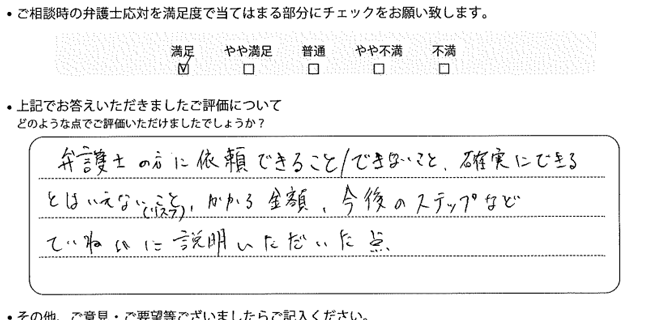 • ご相談時の弁護士応対を満足度で当てはまる部分にチェックをお願い致します。
満足 やや満足 普通 やや不満 不満
☑ □ □ □ □
• 上記でお答えいただきましたご評価について
どのような点でご評価いただけましたでしょうか?
弁護士の方に依頼できること/できないこと、確実にできる
とはいえないこと(リスク)、かかる金額、今後のステップなど
ていねいに説明いただいた点、
• その他、ご意見・ご要望等ございましたらご記入ください。